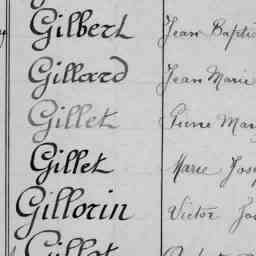 Gilbert Jean Bapti
Gillard Jean Marie
Gillet Pierre Mar
Gillet Marie Jos
Gillorin Victor
Gillot